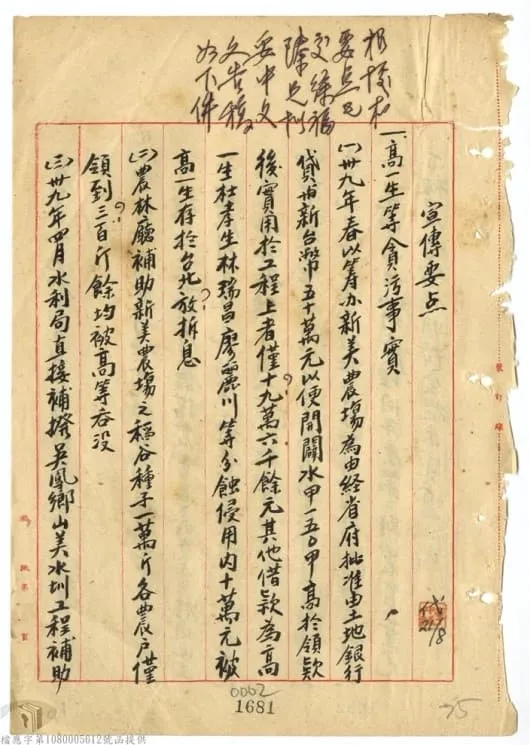 要点已
文告稿
如下件
宣傳要点
一、高一生等貪污事實
㈠卅九年春以籌办新美農場為由経省府批准由土地銀行
貸出新台幣五十萬元以便開闢水甲一五〇甲高於領款
後實用於工程上者僅十九萬六千餘元其他借款為高
一生杜孝生林瑞昌廖麗川等分蝕侵用內十萬元被
高一生存於台北放拆息
㈡農林廳補助新美農場之稻谷種子一萬斤各農戶僅
領到三百斤餘均被高等吞没
㈢卅九年四月水利局直接補撥吳鳳鄉山美水圳工程補助
21/8
裝訂線
0062
1681
75
檔應字第1080005612號函提供